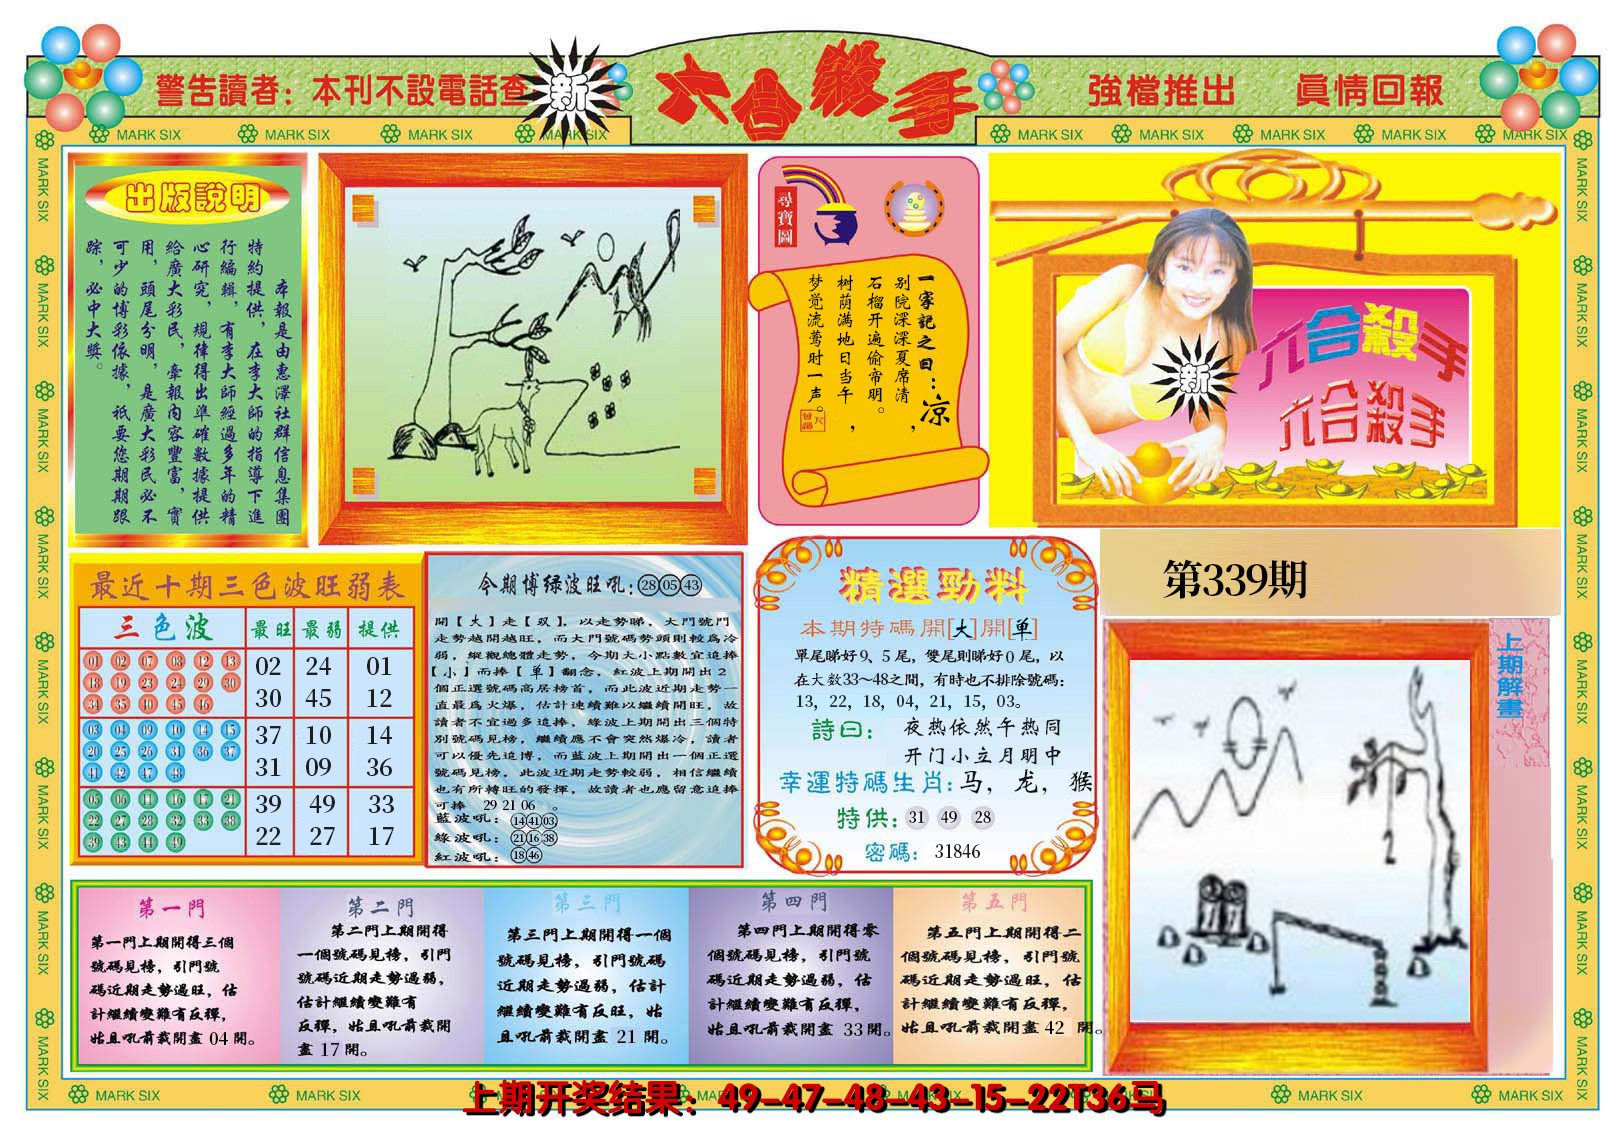 警告讀者：本刊不設電話查
新
六合殺手
強檔推出 真情回報
MARK SIX
出版說明
本報是由惠澤社群信息集團
特約提供，在李大師的指導下進
行編輯，有李大師經過多年的精
心研究，規律得出準確數據提供
給廣大彩民，牽報內容豐富，實
用，頭尾分明，是廣大彩民必不
可少的博彩依據，祇要您期期跟
踪，必中大獎。
尋寶圖
一家記之曰：凉
别院深深夏席清，
石榴开遍偷帝明。
树荫满地日当午，
梦觉流莺时一声。
六合殺手
六合殺手
新
第339期
上期解畫
最近十期三色波旺弱表
三色波 最旺 最弱 提供
01 02 07 08 12 13
18 19 23 24 29 30
34 35 40 45 46
02 24 01
30 45 12
03 04 09 10 14 15
20 25 26 31 36 37
41 42 47 48
37 10 14
31 09 36
05 06 11 16 17 21
22 27 28 32 33 38
39 43 44 49
39 49 33
22 27 17
今期博绿波旺吼：28 05 43
開【大】走【双】，以走勢睇，大門號門
走勢越開越旺，而大門號碼勢頭則較爲冷
弱，縱觀總體走勢，今期大小點數宜追捧
【小】而捧【单】翻念，紅波上期開出2
個正選號碼高居榜首，而此波近期走勢一
直最爲火爆，估計連續難以繼續開旺，故
讀者不宜過多追捧，綠波上期開出三個特
別號碼見榜，繼續應不會突然爆冷，讀者
可以優先追博，而藍波上期開出一個正選
號碼見榜，此波近期走勢較弱，相信繼續
也有所轉旺的發揮，故讀者也應留意追捧
可捧 29 21 06 。
藍波吼：14 41 03
綠波吼：21 16 38
紅波吼：18 46
精選勁料
本期特碼開[大]開[单]
單尾睇好9、5尾，雙尾則睇好0尾，以
在大数33～48之間，有時也不排除號碼：
13，22，18，04，21，15，03。
詩曰：夜热依然午热同
开门小立月明中
幸運特碼生肖：马，龙，猴
特供：31 49 28
密碼：31846
第一門
第一門上期開得三個
號碼見榜，引門號
碼近期走勢過旺，估
計繼續變難有反彈，
姑且吼前裁開畫 04 開。
第二門
第二門上期開得
一個號碼見榜，引門
號碼近期走勢過弱，
估計繼續變難有
反彈，姑且吼前裁開
畫 17 開。
第三門
第三門上期開得一個
號碼見榜，引門號碼
近期走勢過弱，估計
繼續變難有反旺，姑
且吼前裁開畫 21 開。
第四門
第四門上期開得零
個號碼見榜，引門號
碼近期走勢過弱，估
計繼續變難有反彈，
姑且吼前裁開畫 33 開。
第五門
第五門上期開得二
個號碼見榜，引門號
碼近期走勢過旺，估
計繼續變難有反彈，
姑且吼前裁開畫 42 開。
上期开奖结果：49-47-48-43-15-22T36马